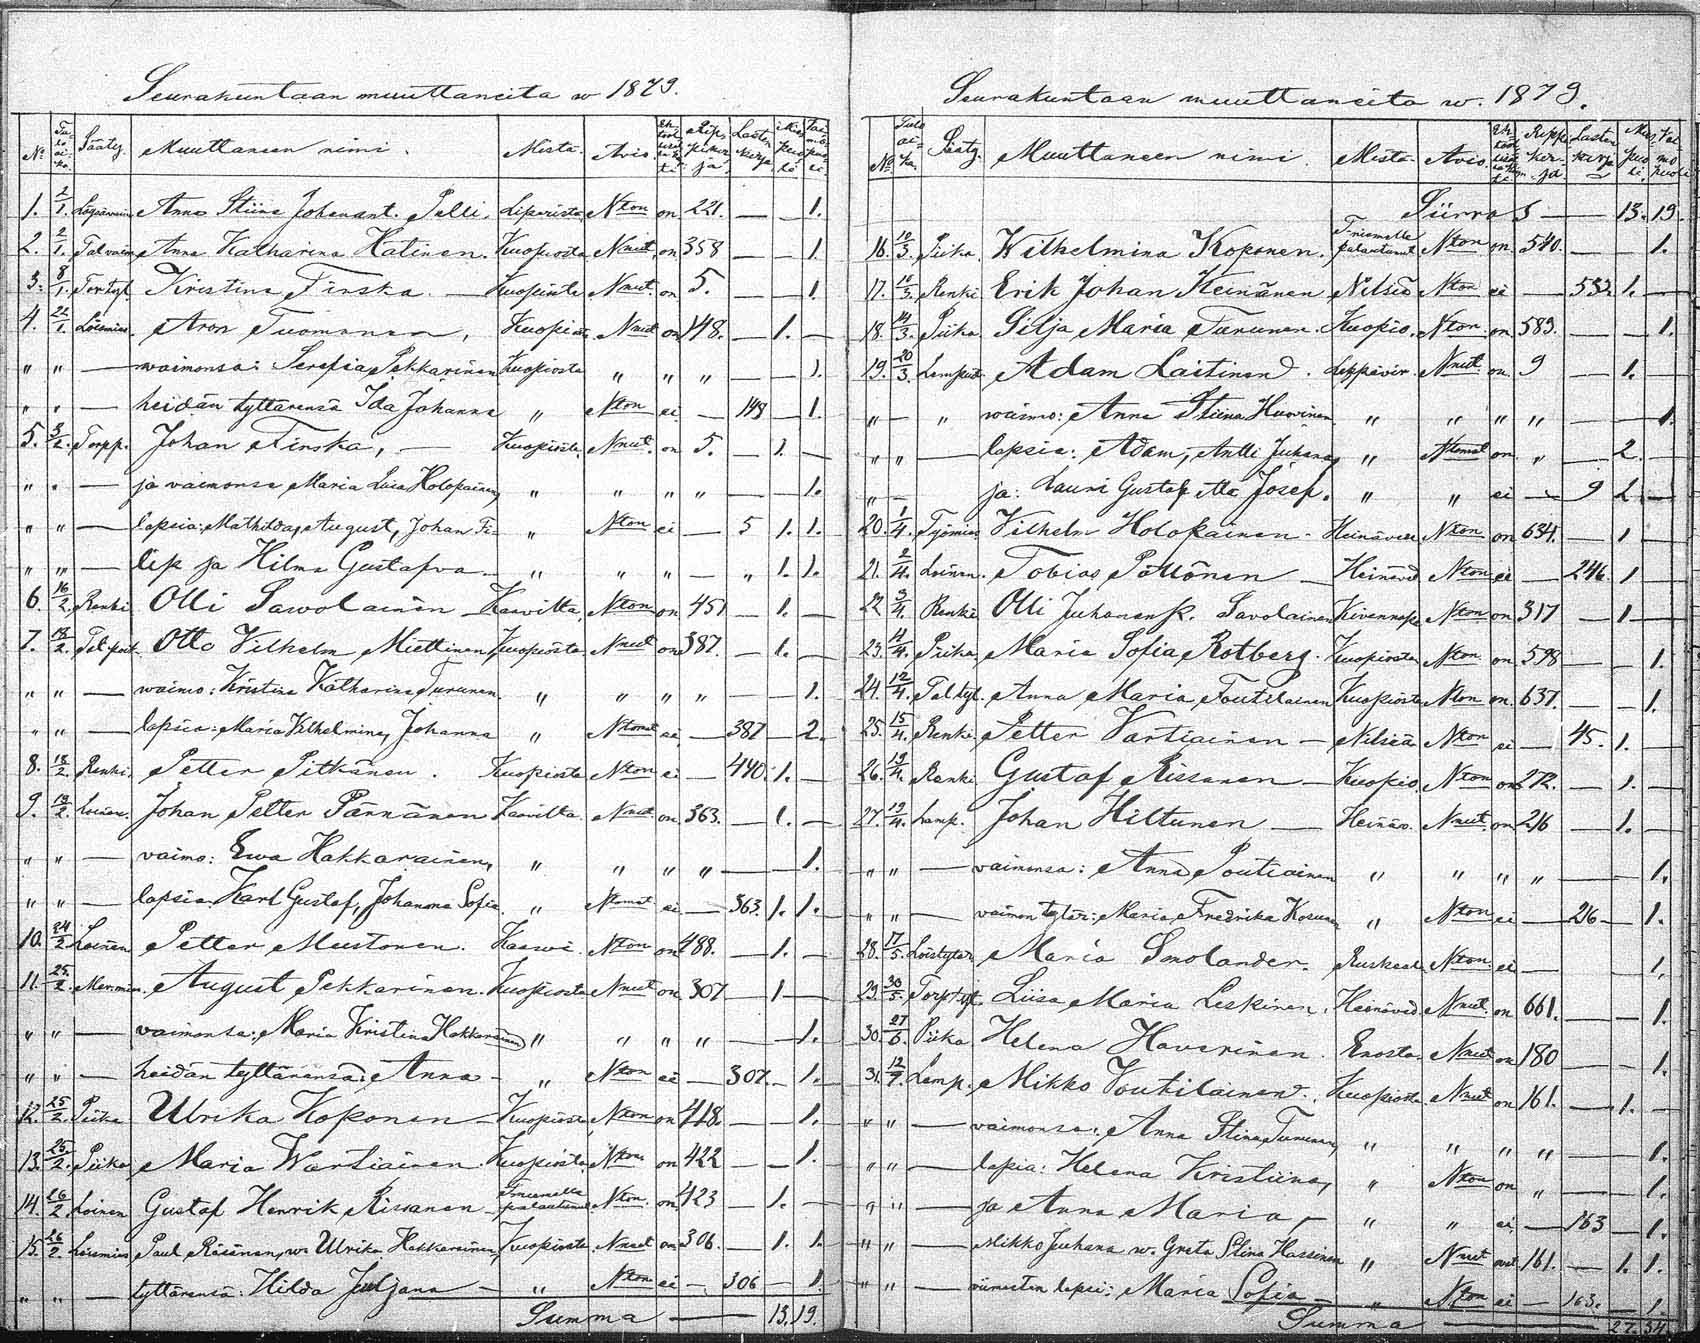 Seurakuntaan muuttaneita w 1879.
No Tulo aika. Sääty. Muuttaneen nimi. Mistä. Avio. Rippikirja Lasten kirja. Miespuolia
1. 2/1. Anna Stiina Johanant. Pelli. Liperistä Nton on 221. — — 1.
2. 2/1. Anna Katharina Hatinen. Kuopiosta Nnut on 358 — — 1.
3. 8/1. Kristina Finska. — Kuopiosta Nnut. on 5. — — 1.
4. 22/1. Aron Tuomanen, Kuopiosta Nnut on 148. — 1. —
" " — waimonsa: Serefia Pekkarinen Kuopiosta " " " — — 1.
" " — heidän tyttärensä Ida Johanna " Nton ei — 148 — 1.
5. 3/2. Torpp. Johan Finska, — Kuopiosta Nnut. on 5. — 1. —
" " — ja vaimonsa Maria Lisa Holopainen, " " " " — — 1.
" " — lapsia: Mathilda, August, Johan Fi- " Nton ei — 5 1. 1.
" " — lip ja Hilma Gustafva — " " " — " 1. 1.
6. 16/2. Renki. Olli Sawolainen Kaavilta, Nton on 451 — 1. —
7. 18/2. Otto Vilhelm Miettinen, Kuopiosta Nnut on 387. — 1. —
" " — waimo: Kristina Katharina Turunen. " " " " — — 1.
" " — lapsia: Maria Vilhelmina, Johanna " Ntomat ei — 387 — 2.
8. 18/2. Renki. Petter Pitkänen. Kuopiosta Nton ei — 440. 1. —
9. 19/2. Loinen. Johan Petter Pännänen Kaavilta. Nnut on 363. — 1. —
" " — vaimo: Ewa Hakkarainen, " " " " — — 1.
" " — lapsia: Karl Gustaf, Johanna Sofia " Ntomat ei — 363. 1. 1.
10. 24/2. Loinen Petter Mustonen. Kaawi. Nton on 488. — 1. —
11. 25/2. August Pekkarinen. Kuopiosta Nnut on 307 — 1 —
" " — vaimonsa: Maria Kristina Hakkarainen " " " " — — 1.
" " — heidän tyttärensä: Anna — " Nton ei — 307. — 1.
12. 25/2. Piika Ulrika Koponen — Kuopiosta Nton on 418. — — 1.
13. 25/2. Piika Maria Wartiainen Kuopiosta Nton on 422 — — 1.
14. 26/2 Loinen Gustaf Henrik Rissanen — palautunut Nton. on 423 — 1. —
15. 26/2. Paul Räsänen, w. Ulrika Hakkarainen, Kuopiosta Nnut on 306. — 1. 1.
" " — tyttärensä: Hilda Juljana — " Nton ei — 306 — 1.
Summa — 13. 19.
Seurakuntaan muuttaneita w. 1879.
No Tulo aika. Sääty. Muuttaneen nimi. Mistä. Avio. Rippikirja Lasten kirja Miespuoli Vaimopuoli
Siirros — 13. 19.
16. 10/3. Piika Wilhelmina Koponen. palautunut Nton on 540. — — 1.
17. 10/3. Renki Erik Johan Heinänen Nilsiä Nton ei — 532 1. —
18. 14/3. Piika. Silja Maria Turunen. Kuopio. Nton on 583. — — 1.
19. 20/3. Adam Laitinen. Leppävir. Nnut on 9 — 1. —
" — " waimo: Anna Stiina Huovinen " " " " — — 1.
" " — lapsia: Adam, Antti Juhana, " Ntomat on " — 2. —
" — ja: Lauri Gustaf, Josef. " " ei — 9 2. —
20. 1/4. Työmies Vilhelm Holopainen. Heinäves Nton on 634. — 1 —
21. 2/4. Loinen. Tobias Pöllönen — Heinäved Nton ei — 246. 1 —
22 3/4. Renki Olli Juhananp. Savolainen Kivennapa Nton on 317 — 1 —
23. 4/4. Piika. Maria Sofia Rotberg. Kuopiosta Nton on 598 — — 1.
24. 12/4. Anna Maria Toutilainen Kuopiosta Nton on. 637. — — 1.
25. 15/4. Renki. Petter Vartiainen — Nilsiä Nton ei — 45. 1. —
26. 19/4. Renki Gustaf Rissanen — Kuopio. Nton on 272. — 1. —
27. 19/4. Lamp. Johan Hiltunen — Heinäv. Nnut. on 216 — 1. —
" " — vaimonsa: Anna Poutiainen " " " " — — 1.
" " — vaimon tytär: Maria Fredrika Kosunen " Nton ei — 216 — 1.
28. 17/5. Loistytär Maria Smolander. Ruskeala Nton. ei — 1.
29. 30/5. Liisa Maria Leskinen. Heinäved Nnut. on 661. — — 1.
30. 27/6. Piika Helena Haverinen. Enosta. Nnut on 180 — — 1.
31. 12/7. Lamp. Mikko Voutilainen. Kuopiosta. Nnut on 161. — 1. —
" " — vaimonsa: Anna Stina Turunen, " " " " — — 1.
" " — lapia: Helena Kristiina, " Nton on " — — 1.
" " — ja Anna Maria, — " " ei — 163 — 1.
" " — Mikko Juhana w. Greta Stina Hassinen " Nnut 161. — 1. 1.
" " — viimesten lapsi: Maria Sofia — " Nton ei — 163. — 1.
Summa — 27. 34.